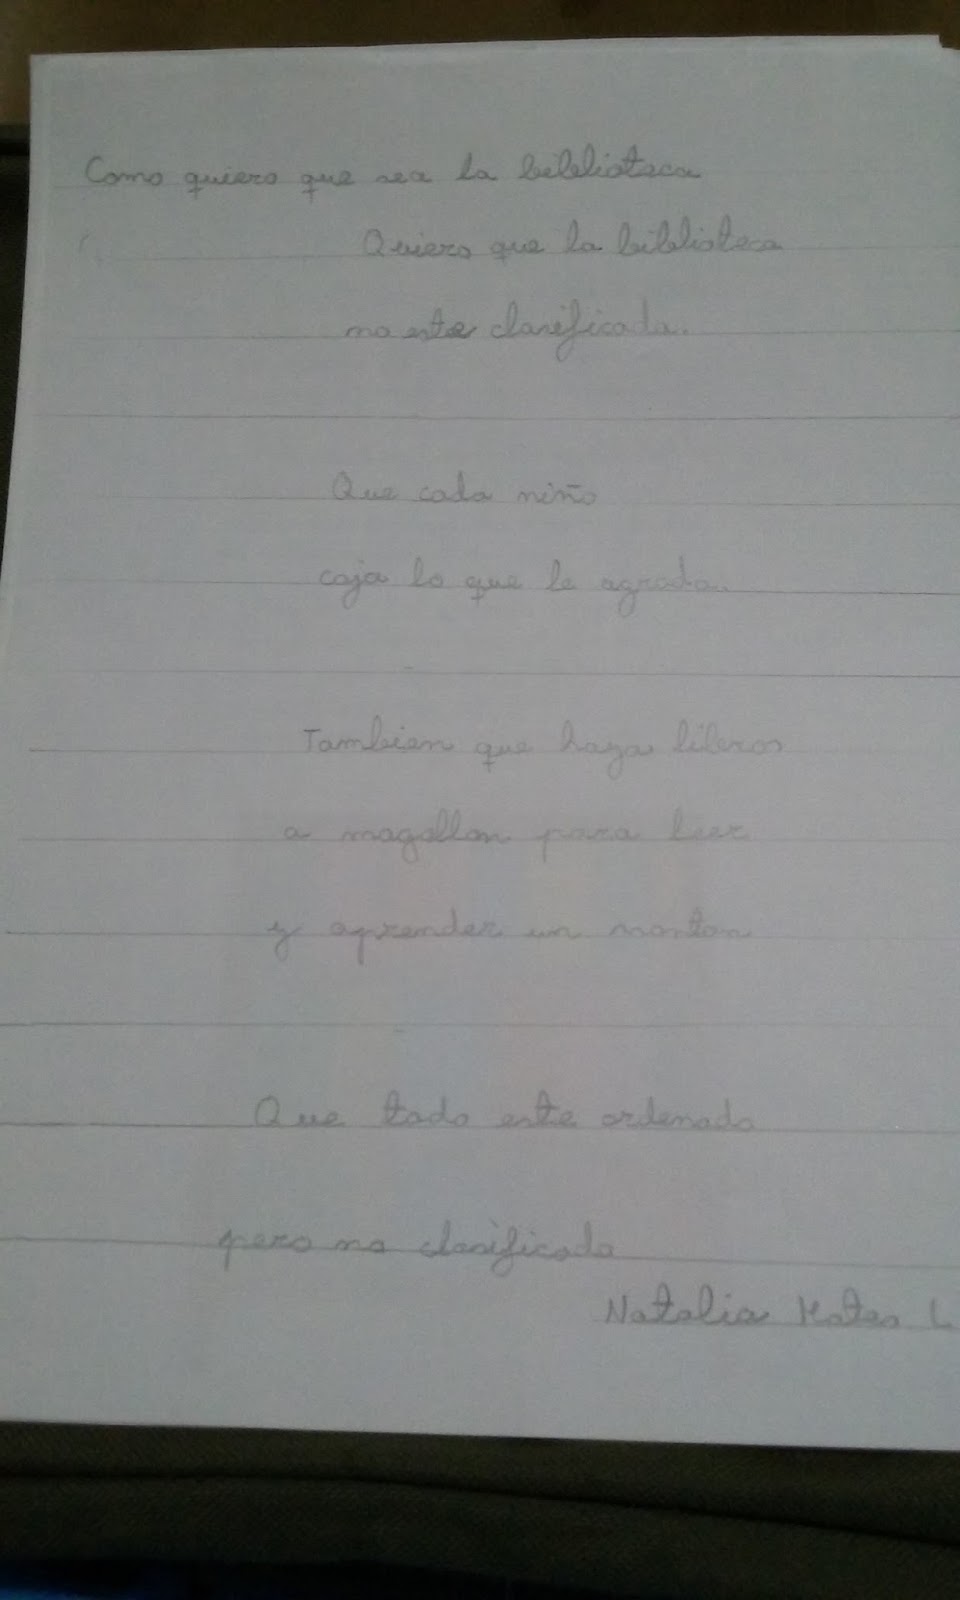 Como quiero que sea la biblioteca
Quiero que la biblioteca
no este clasificada.
Que cada niño
coja lo que le agrada.
Tambien que haya libros
a magollon para leer
y aprender un monton
Que todo este ordenado
pero no clasificado
Natalia Mateo L